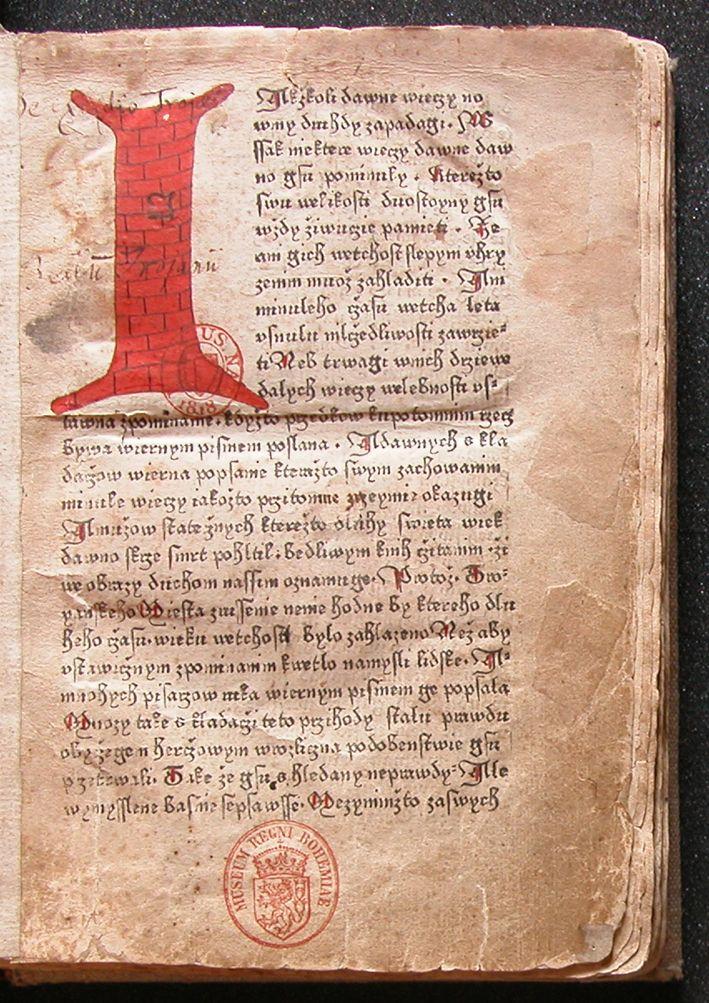 I
Alkžkoli dawne wieczy no
winy duchdy zapadagi. Ws
ssak niektere wieczy dawne daw
no gsu pominuly. Kterežto
swu welikosti duostoyny gsu
wždy žiwucie pamieti. Že
ani gich wetchost slepym vhry
zenim muož zahladiti. Ani
minuleho čzasu wetcha leta
vsnulu mlčzedliwosti zawrzie⸗
ti Neb trwagi wnich drziewe
dalych wieczy welebnosti vs⸗
tawna zpominanie. kdyžto przedkow kupotomnim rzecz
bywa wiernym pismem poslana. Adawnych skla
daczow wierna popsanie kterežto swym zachowanim
minule wieczy iakožto przitomne zrzeymie okazugi
Amužow statečznych kterežto dluhy swieta wiek
dawno skrze smrt pohltil. bedliwym knih čzitanim. ži
we obrazy duchom nassim oznamuge. Protož. Tro⸗
yanskeho Miesta zrussenie nenie hodne by ktereho dlu
heho čzasu. wieku wetchosti bylo zahlazeno Než aby
vstawičznym zpominanim kwetlo namysli lidske. A⸗
mnohych pisarzow ruka wiernym pismem ge popsala
Mnozy take skladaczi teto przihody stalu prawdu
obyčzegem herčzowym wrozličzna podobenstwie gsu
przetwali. Take že gsu shledany neprawdy⸗ Alle
wymysslene basnie sepsawsse. Mezyminižto zaswych
MUSEUM REGNI BOHEMIAE
1818